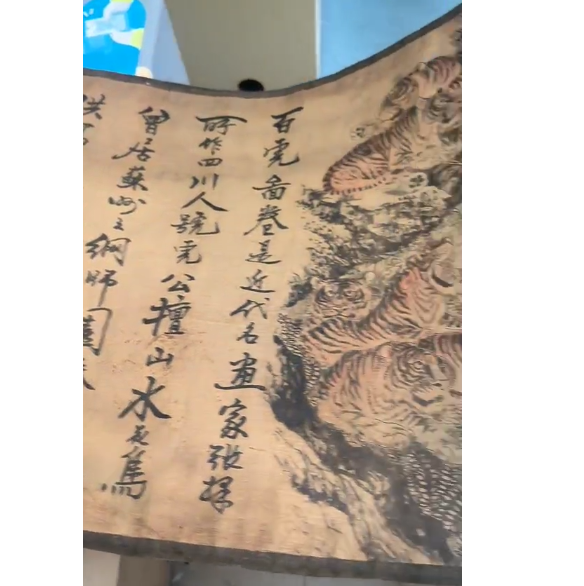 百虎啚卷是近代名畫家張擇
所作四川人號虎公擅山水花鳥
曾居蘇州之網師園